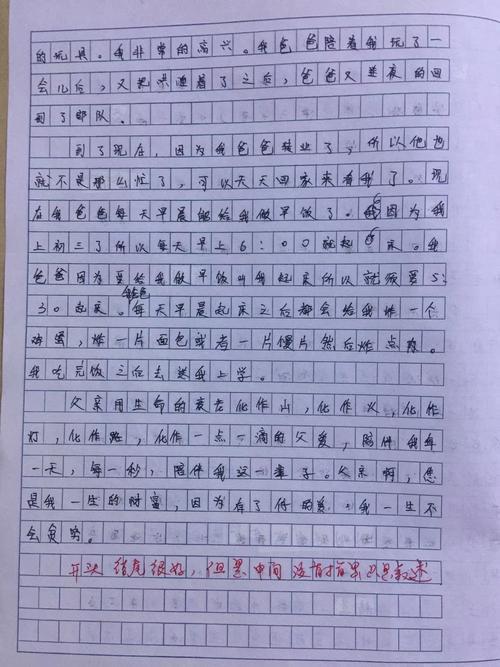 的玩具。我非常的高兴。我爸爸陪着我玩了一
会儿后，又把哄睡着了之后，爸爸又连夜的回
到了部队。
到了现在，因为我爸爸转业了，所以他也
就不是那么忙了，可以天天回家来看我了。现
在我爸爸每天早晨能给我做早饭了。因为我
上初三了所以每天早上6:00就起床。我
爸爸因为要给我做早饭叫我起床所以就须要5:
30起床。每天早晨起床之后都会给我炸一个
鸡蛋，炸一片面包或者一片馒片然后炸点
我吃完饭之后去送我上学。
父亲用生命的衰老化作山，化作火，化作
灯，化作路，化作一点一滴的父爱，陪伴我每
一天，每一秒，陪伴我这一辈子。父亲啊，您
是我一生的财富，因为有了你的爱，我一生不
会贫穷。
开头结尾很好，但是中间没有描写只是叙述